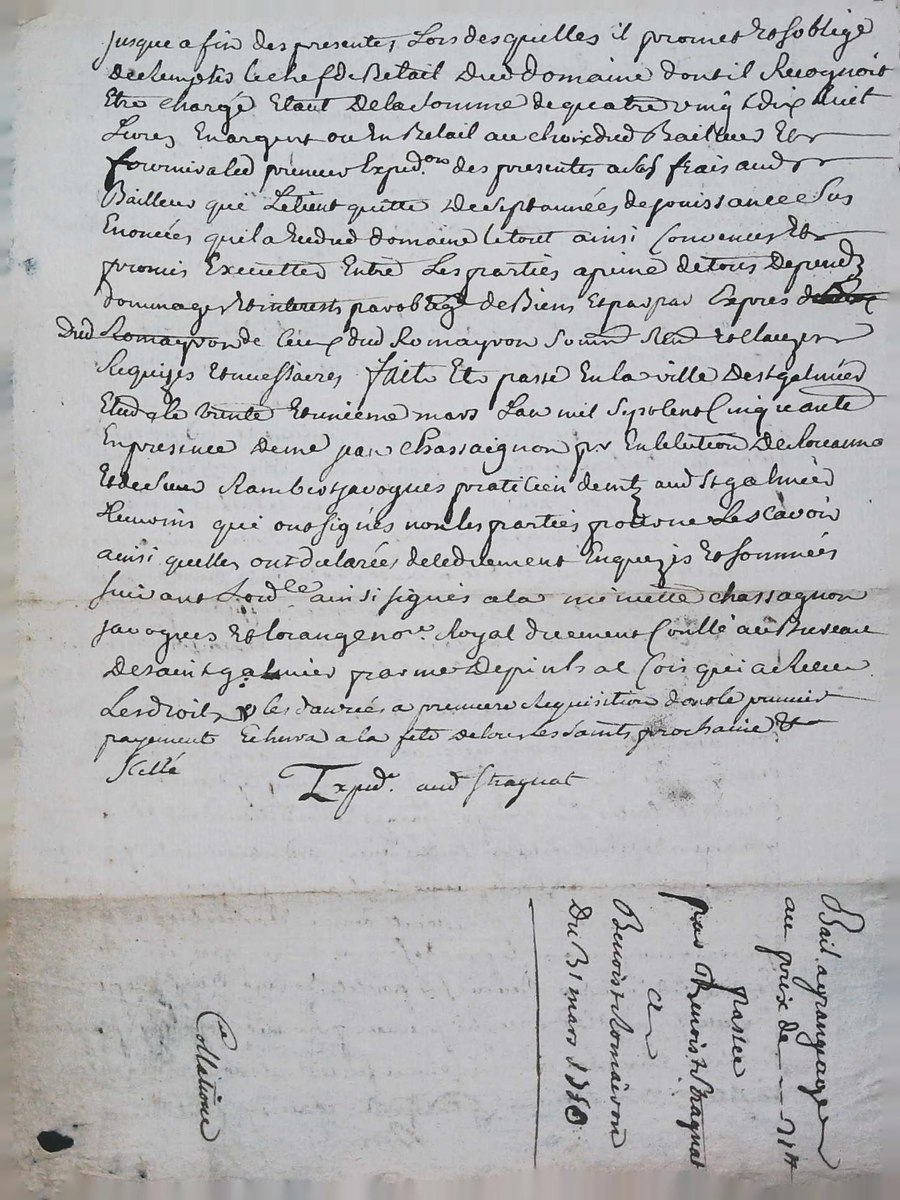 jusque a fin des presentes, Lors desquelles il promet et soblige
de Remplir le chef de Betail dud domaine dont il Recognoit
Etre chargé Etant De la Somme de quatre vingt dix huit
Livres En argent ou En Betail au choix dud Bailleur Et
fournira led premier Expedon des presentes a ses frais aud
Bailleur qui Letient quitte de Sept années de jouissance Sus
Enoncées quil a Eu dud domaine le tout ainsi Convenu Et
promis Executter Entre Les parties a peine de tous Depend
dommages et interests par oblige de Biens Et par Exprès
Dud Romayron de Ceux dud Romayron Soumn Renn et Clauzes
Requizes et necessaires fait Et passé En la ville de St galmier
Etude le trente Et unieme mars Lan mil Sept Cent Cinquante
En presence de me jean Chassaignon pr En lelection de Roanne
Et de Sieur Rambert javogues praticien demt aud St galmier
temoins qui ont signés non les parties pour ne Lesçavoir
ainsi quelles ont declarées de ce duement Enquezis et Sommées
suivant Lordce ainsi signés a la minutte chassagnon
javogues Et lorange nore Royal duement Conllé au Bureau
de Saint galmier par me Depinhal Cois qui a Receu
Les droits les danrées a premiere Requisition dont le premier
payement Echerra a la fete de tous Les Saints prochaine Et
Scellé
Expedr. aud Stragnat
Bail a grangeage
au prix de 71tt
passée
par Benoist Stragnat
a
Benoist Romairon
Du 31 mars 1750
Collationé